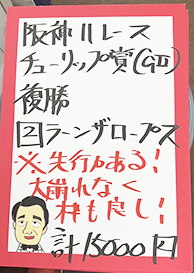 阪神11レース
チューリップ賞(GⅡ)
複勝
②ラーンザロープス
※先行力ある!
大崩れなく
枠も良し!
計15000円